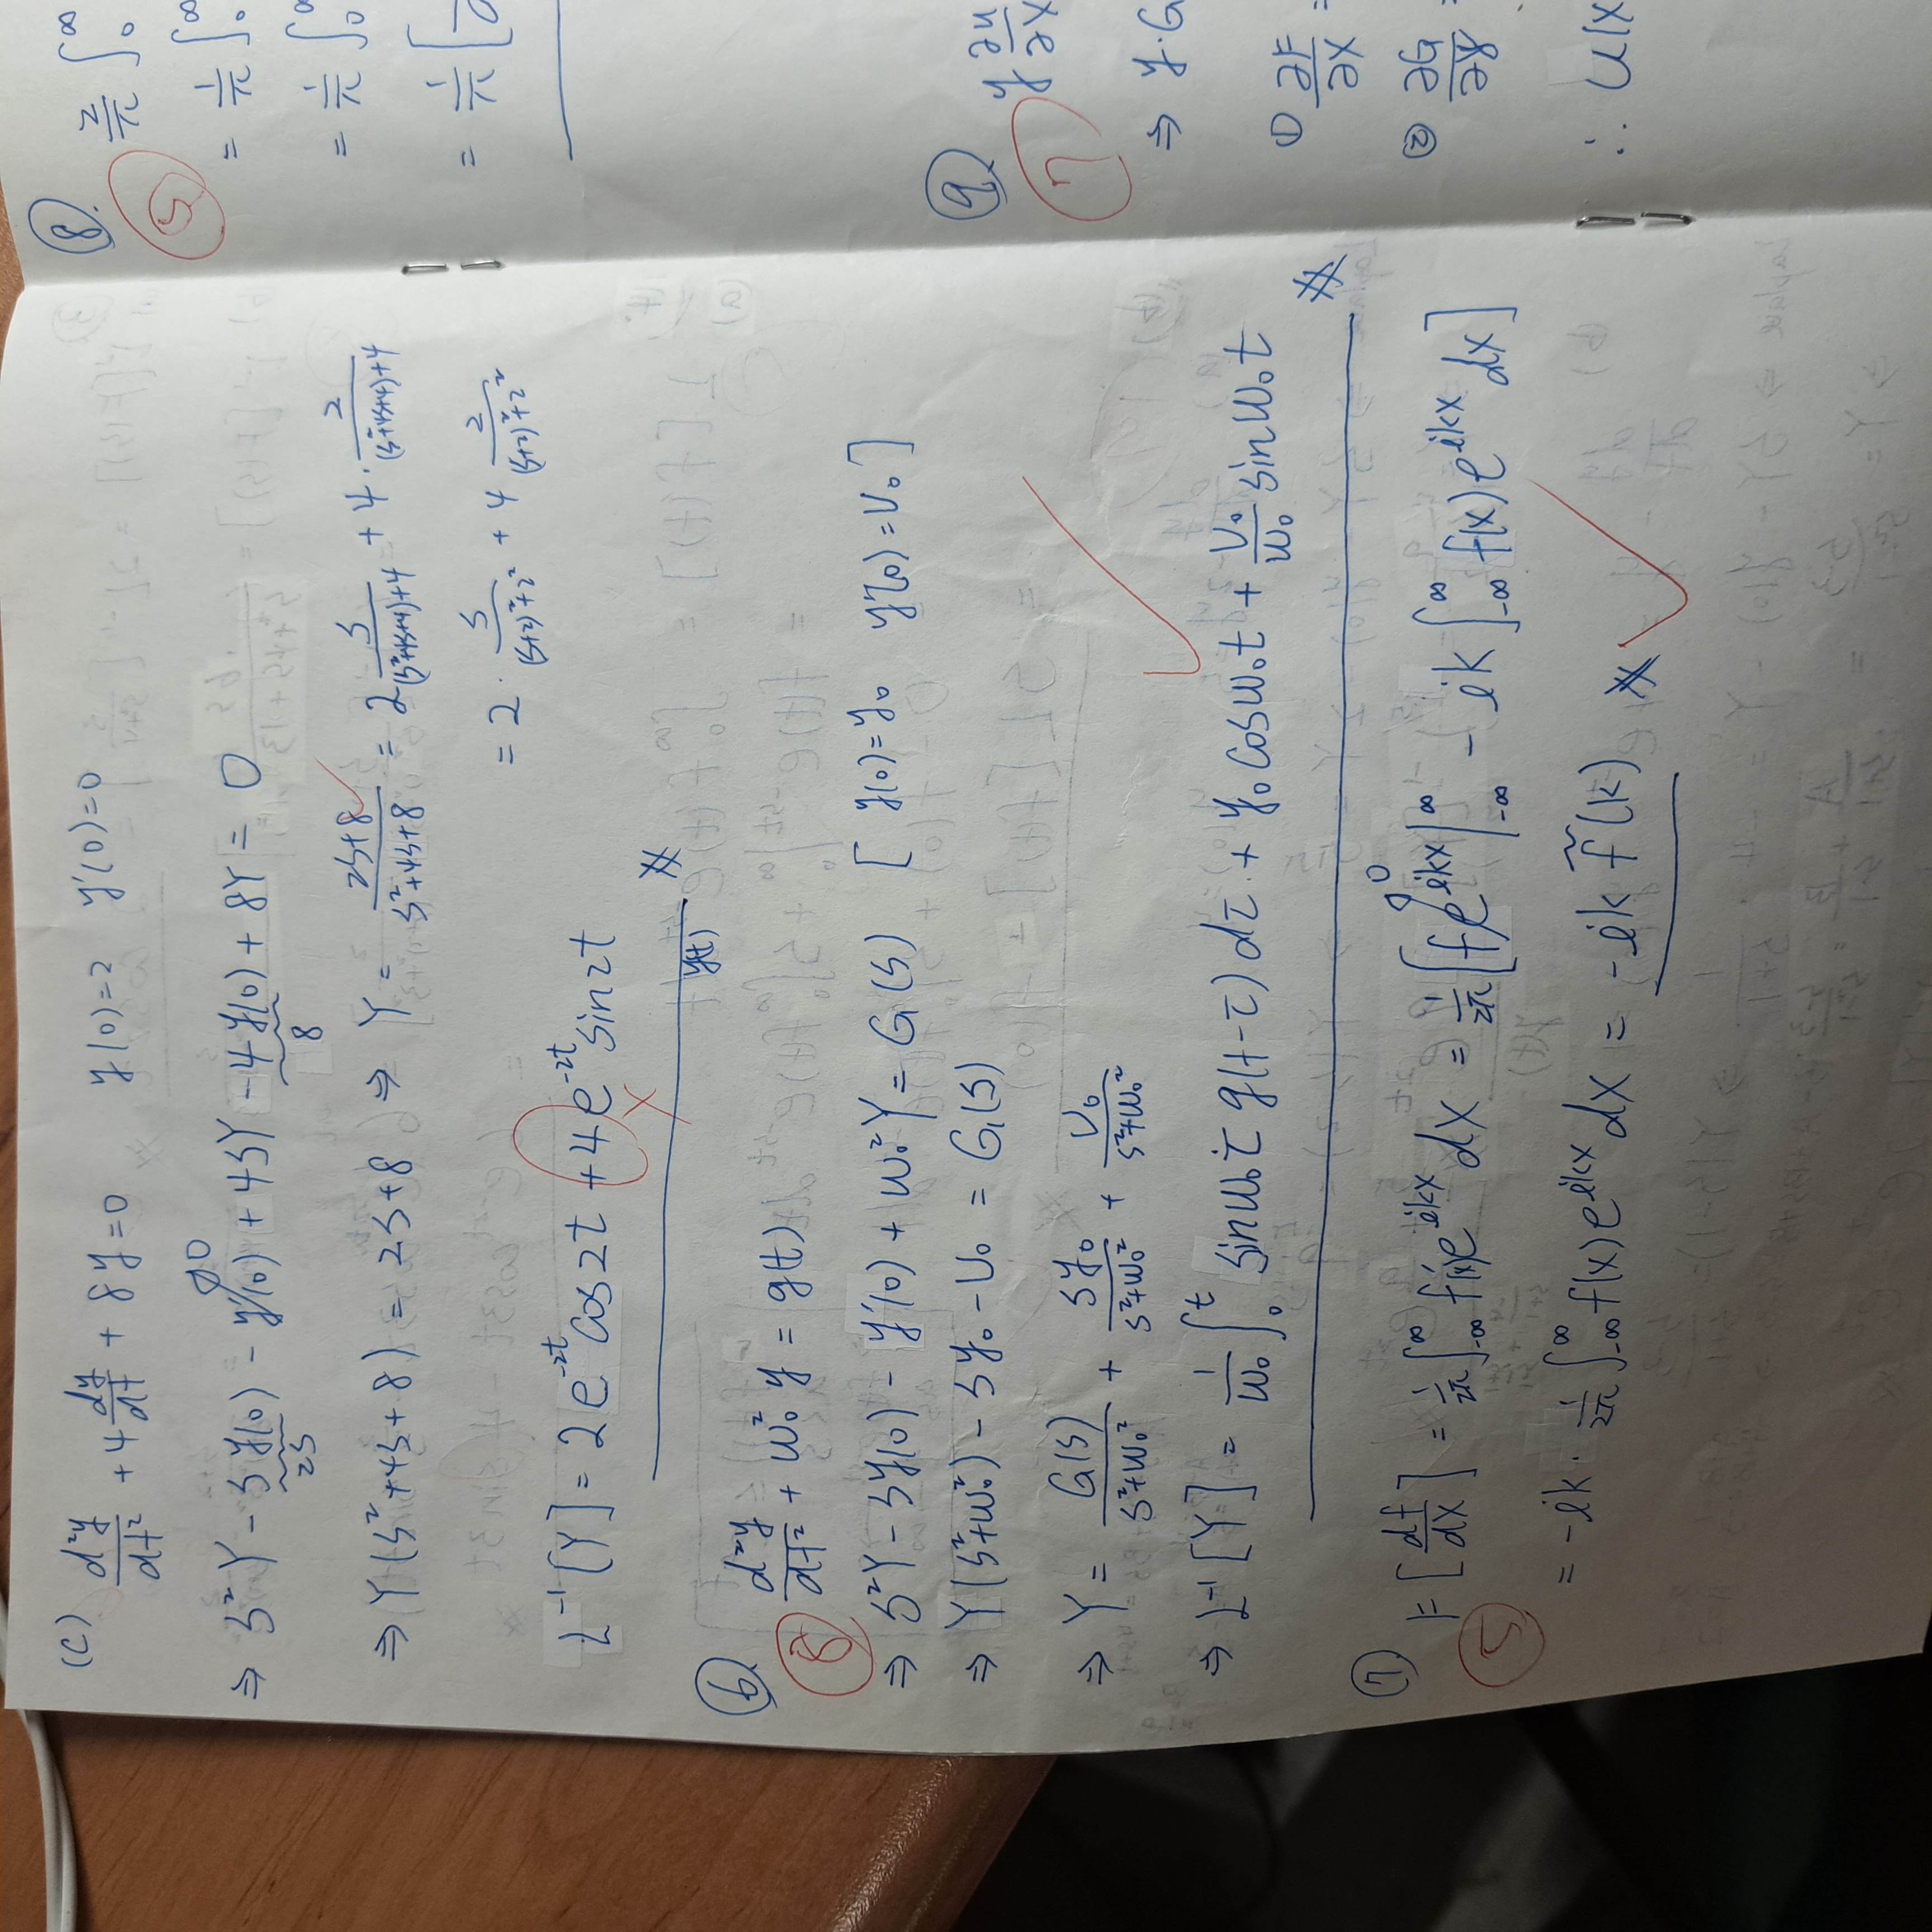 (c) d²y/dt² + 4 dy/dt + 8y = 0 y(0)=2 y'(0)=0
⇒ s²Y - sy(0) - y'(0) + 4sY - 4y(0) + 8Y = 0
2s 0 8
⇒ Y(s²+4s+8) = 2s+8 ⇒ Y = (2s+8)/(s²+4s+8) = 2 s/((s²+4s+4)+4) + 4· 2/((s²+4s+4)+4)
= 2· s/((s+2)²+2²) + 4 2/((s+2)²+2²)
L⁻¹[Y] = 2e^(-2t) cos2t + 4e^(-2t) sin2t
y(t)
⑥
8
d²y/dt² + w₀² y = g(t)
⇒ s²Y - sy(0) - y'(0) + w₀²Y = G(s) [ y(0)=y₀ y'(0)=v₀ ]
⇒ Y(s²+w₀²) - sy₀ - v₀ = G(s)
⇒ Y = G(s)/(s²+w₀²) + sy₀/(s²+w₀²) + v₀/(s²+w₀²)
⇒ L⁻¹[Y] = 1/w₀ ∫₀ᵗ sinw₀τ g(t-τ)dτ + y₀cosw₀t + v₀/w₀ sinw₀t
⑦
5
F[df/dx] = 1/2π ∫_-∞^∞ f'(x)e^(ikx) dx = 1/2π [f e^(ikx) |_-∞^∞ - ik ∫_-∞^∞ f(x)e^(ikx) dx]
0
= -ik· 1/2π ∫_-∞^∞ f(x)e^(ikx) dx = -ik f̃(k)
⑧
5
2/π ∫₀^∞
= 1/π ∫₀^∞
= 1/π ∫₀^∞
= 1/π [
⑨
7
y ∂u/∂x
⇒ y·G
① ∂F/∂x =
② ∂G/∂y =
∴ u(x